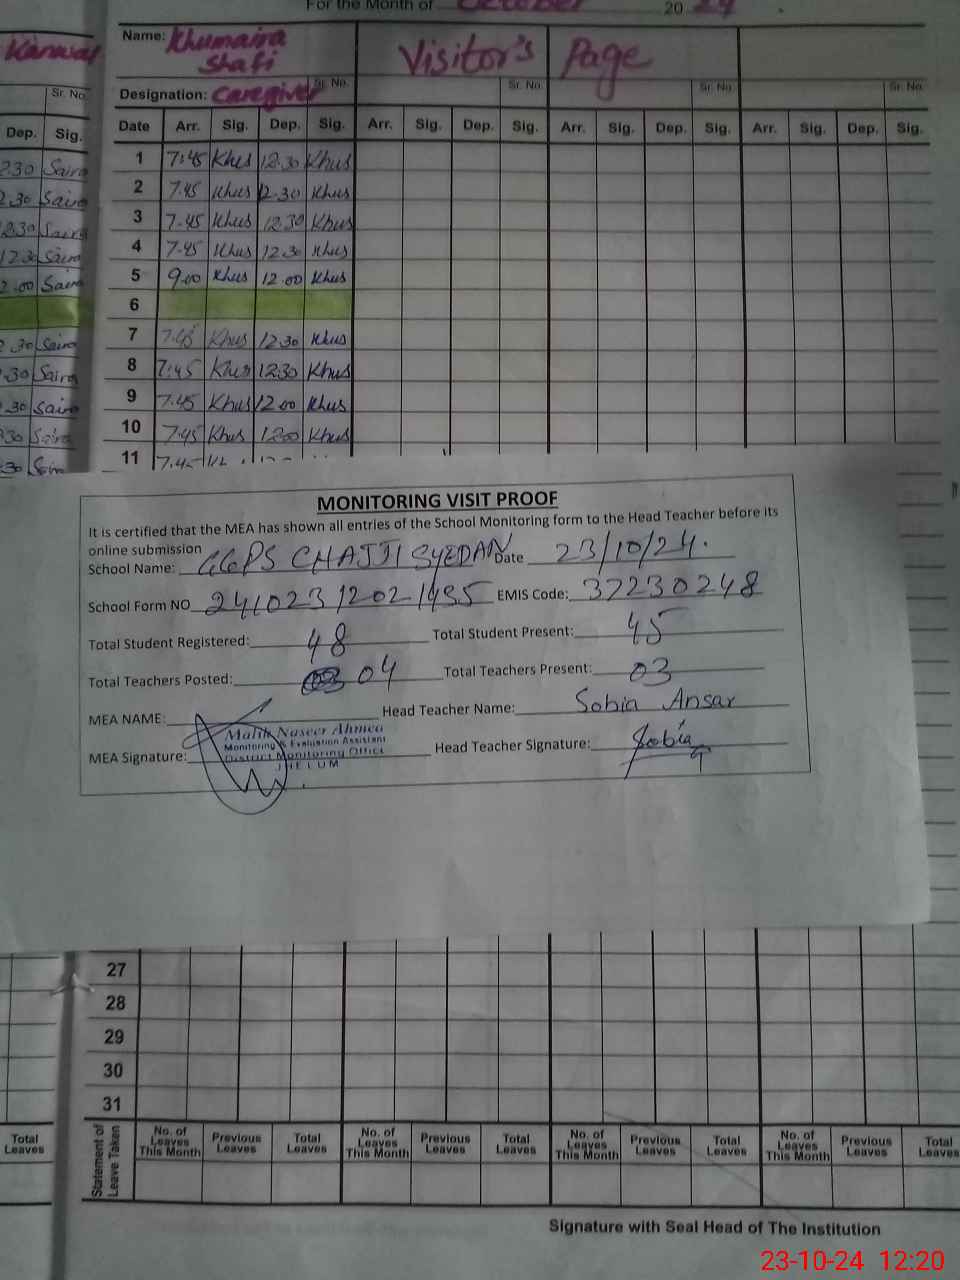 For the Month of October 20 24
Kanwal
Name: Khumaira Shafi
Visitor's Page
Designation: Caregiver Sr. No. Sr. No. Sr. No. Sr. No.
Sr. No.
Dep. Sig.
Date Arr. Sig. Dep. Sig. Arr. Sig. Dep. Sig. Arr. Sig. Dep. Sig. Arr. Sig. Dep. Sig.
2.30 Saira 1 7:45 Khus 12.30 Khus
2.30 Saira 2 7.45 Khus 12.30 Khus
12.30 Saira 3 7.45 Khus 12.30 Khus
12.30 Saira 4 7.45 Khus 12.30 Khus
2.00 Saira 5 9.00 Khus 12.00 Khus
6
2.30 Saira 7 7.45 Khus 12.30 Khus
.30 Saira 8 7:45 Khus 12.30 Khus
.30 Saira 9 7.45 Khus 12.00 Khus
.30 Saira 10 7.45 Khus 12.00 Khus
.30 Saira 11 7.45
MONITORING VISIT PROOF
It is certified that the MEA has shown all entries of the School Monitoring form to the Head Teacher before its
online submission
School Name: GGPS CHAJJI SYEDAN Date 23/10/24.
School Form NO 241023120211435 EMIS Code: 37230248
Total Student Registered: 48 Total Student Present: 45
Total Teachers Posted: 04 Total Teachers Present: 03
MEA NAME: Head Teacher Name: Sobia Ansar
Malik Naseer Ahmed
Monitoring & Evaluation Assistant
District Monitoring Office
JHELUM
MEA Signature: Head Teacher Signature: Sobia
27
28
29
30
31
Total Leaves
Statement of Leave Taken
No. of Leaves This Month Previous Leaves Total Leaves No. of Leaves This Month Previous Leaves Total Leaves No. of Leaves This Month Previous Leaves Total Leaves No. of Leaves This Month Previous Leaves Total Leaves
Signature with Seal Head of The Institution
23-10-24 12:20